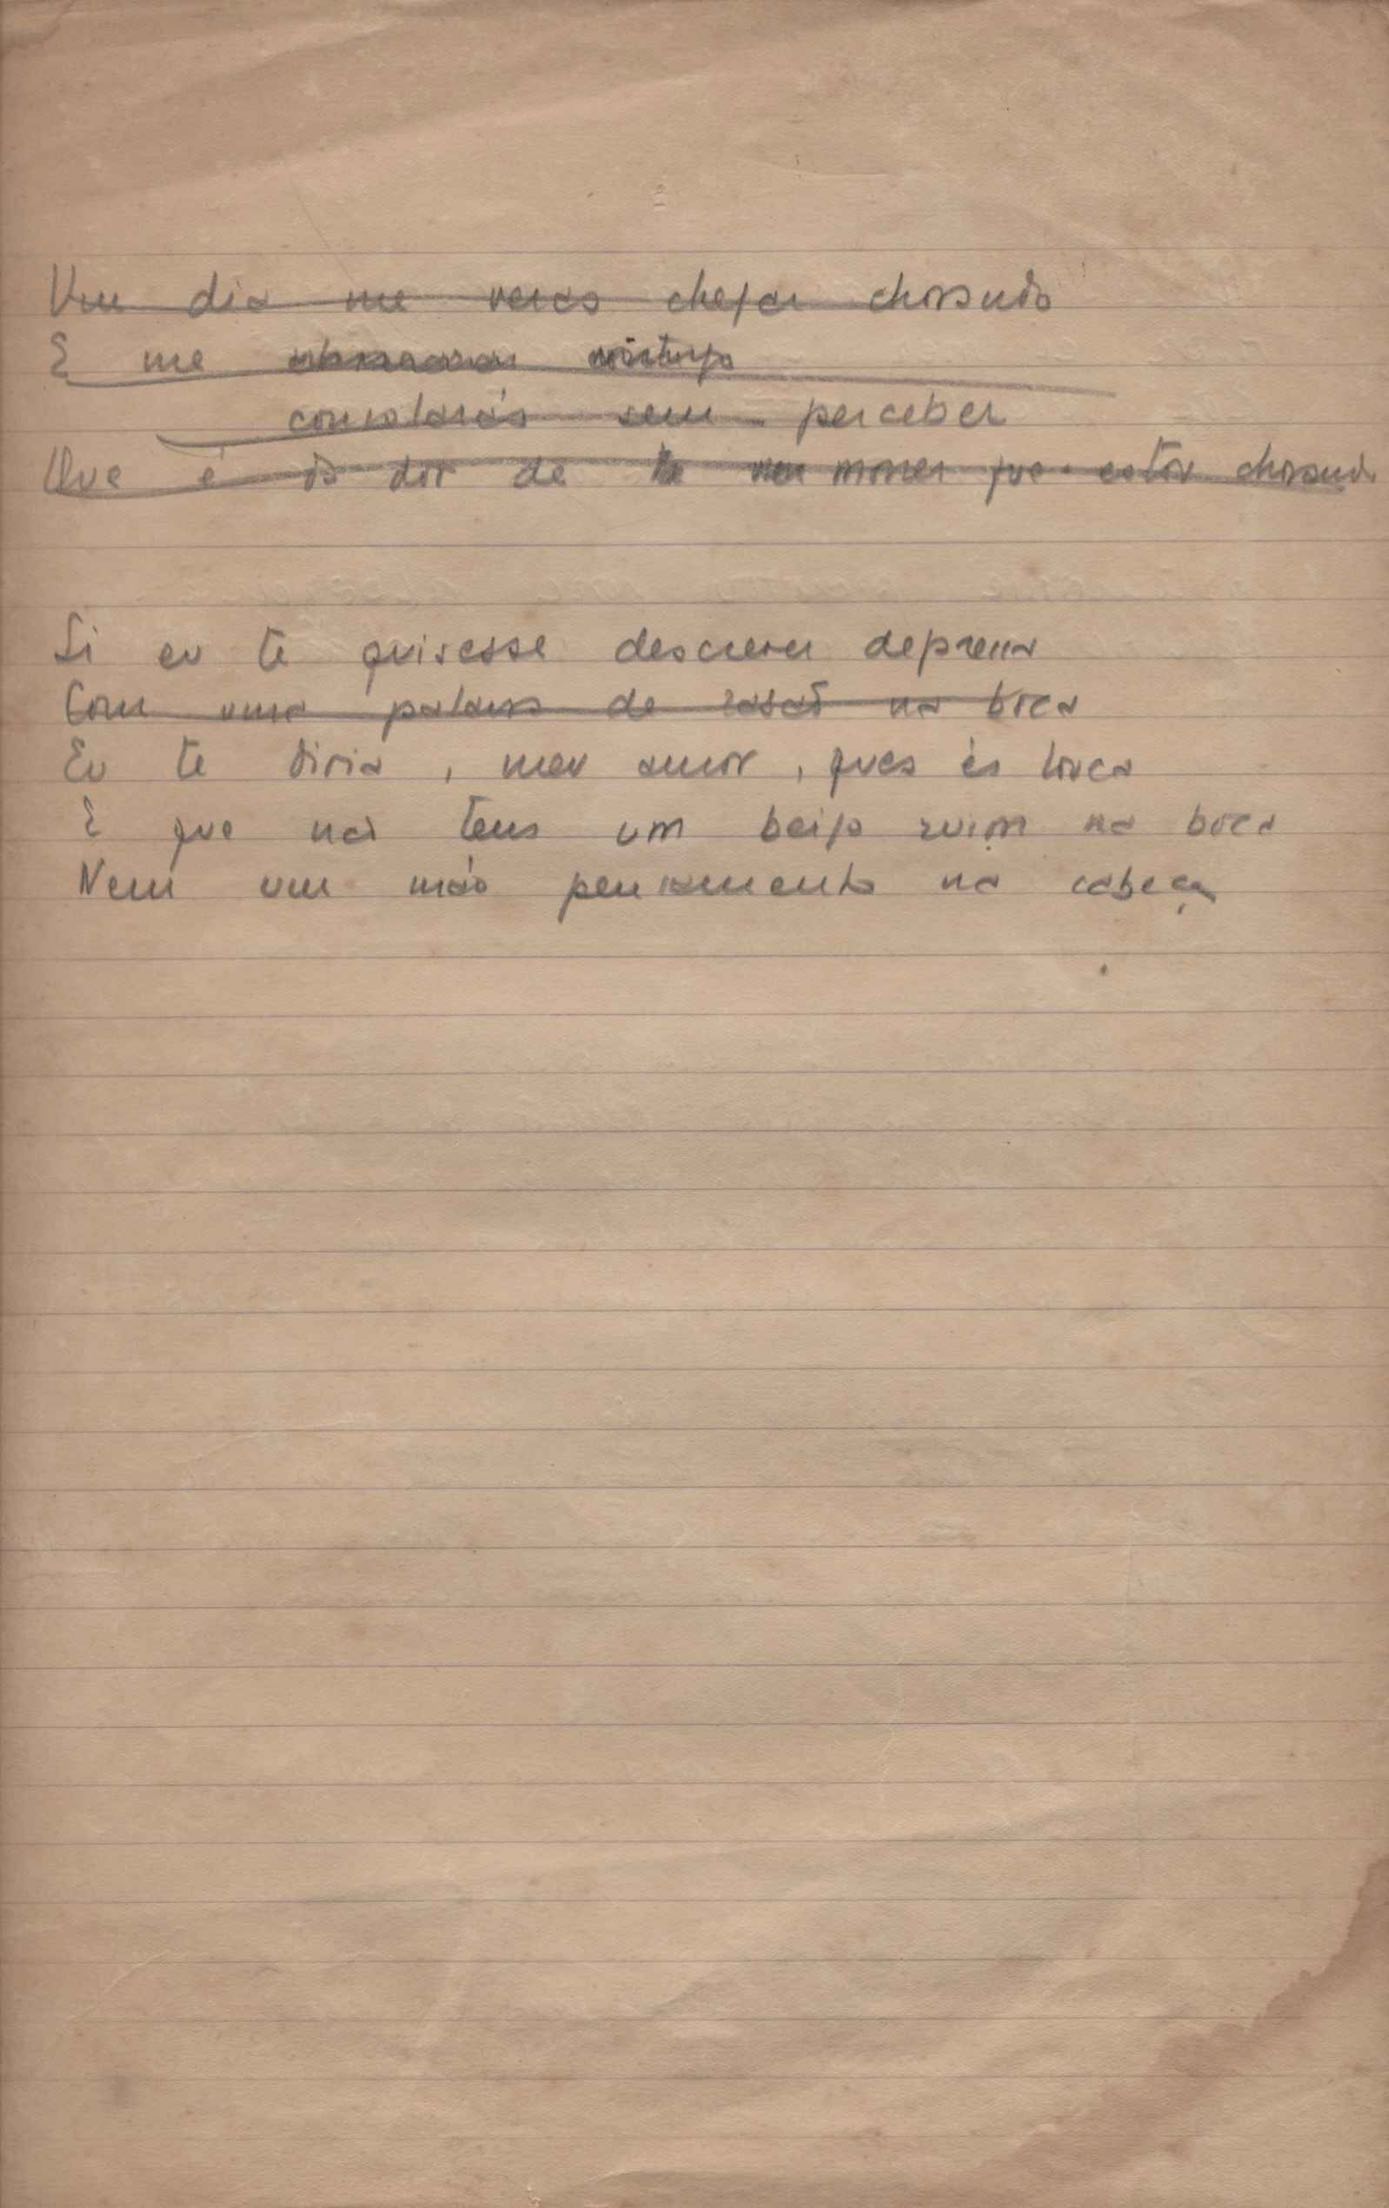 Um dia me verás chegar chorando
E me
consolarás sem perceber
Que é só dor de morrer que estou chorando
Si eu te quisesse descrever depressa
Com uma palavra de razão na boca
Eu te diria, meu amor, ques és louca
E que não tens um beijo ruim na boca
Nem um máo pensamento na cabeça